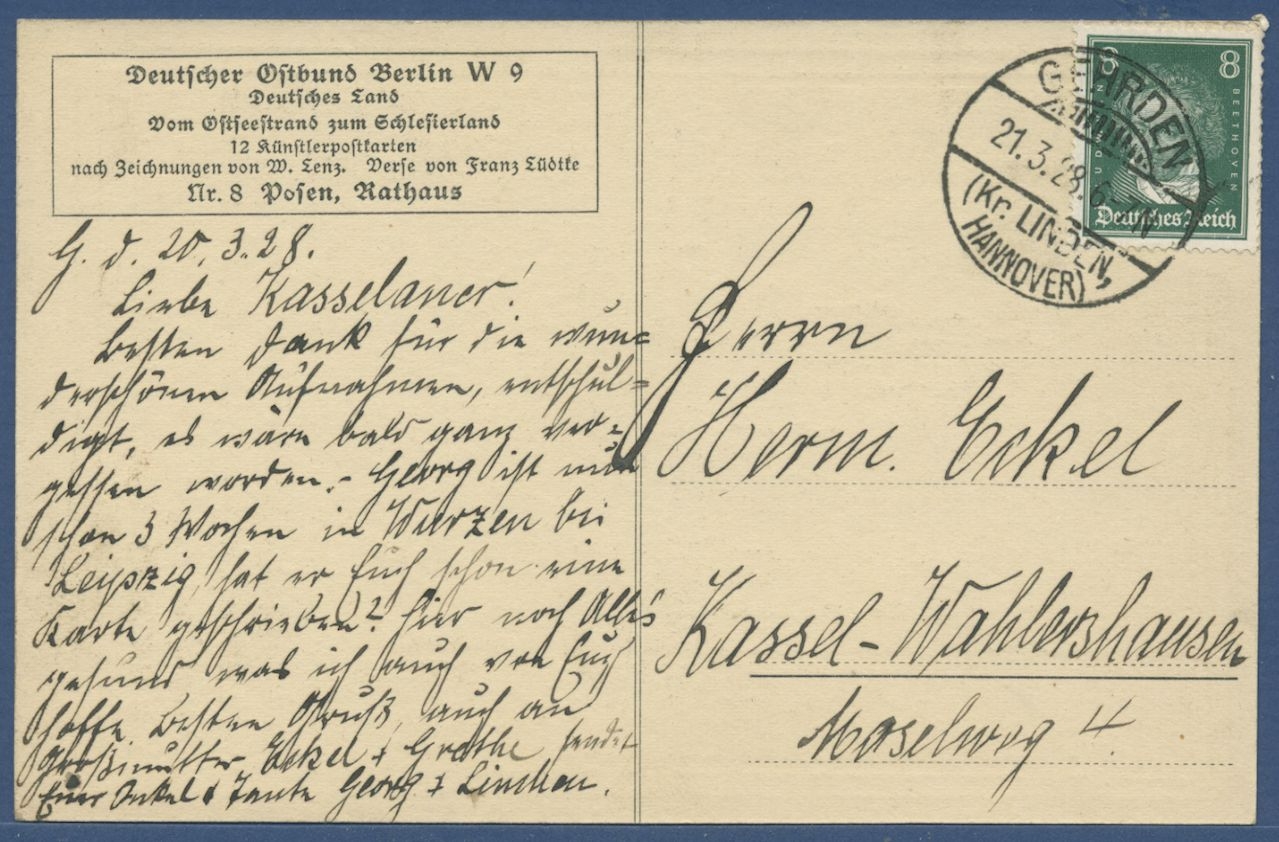 Deutscher Ostbund Berlin W 9
Deutsches Land
Vom Ostseestrand zum Schlesierland
12 Künstlerpostkarten
nach Zeichnungen von W. Lenz. Verse von Franz Lüdtke
Nr. 8 Posen, Rathaus
G. d. 20.3.28.
Liebe Kasselaner!
Besten Dank für die wun=
derschönen Aufnahmen, entschul=
digt, es wäre bald ganz ver=
gessen worden. – Georg ist nun
schon 3 Wochen in Wurzen bei
Leipzig, hat er Euch schon eine
Karte geschrieben? Hier noch Alles
gesund was ich auch von Euch
hoffe. Besten Gruß, auch an
Großmutter Eckel + Grethe sendet
Euer Onkel & Tante Georg + Linchen.
8 8
BEETHOVEN
Deutsches Reich
GEHRDEN
21.3.28.6-7N
(Kr. LINDEN,
HANNOVER)
Herrn
Herm. Eckel
Kassel-Wahlershausen
Moselweg 4.